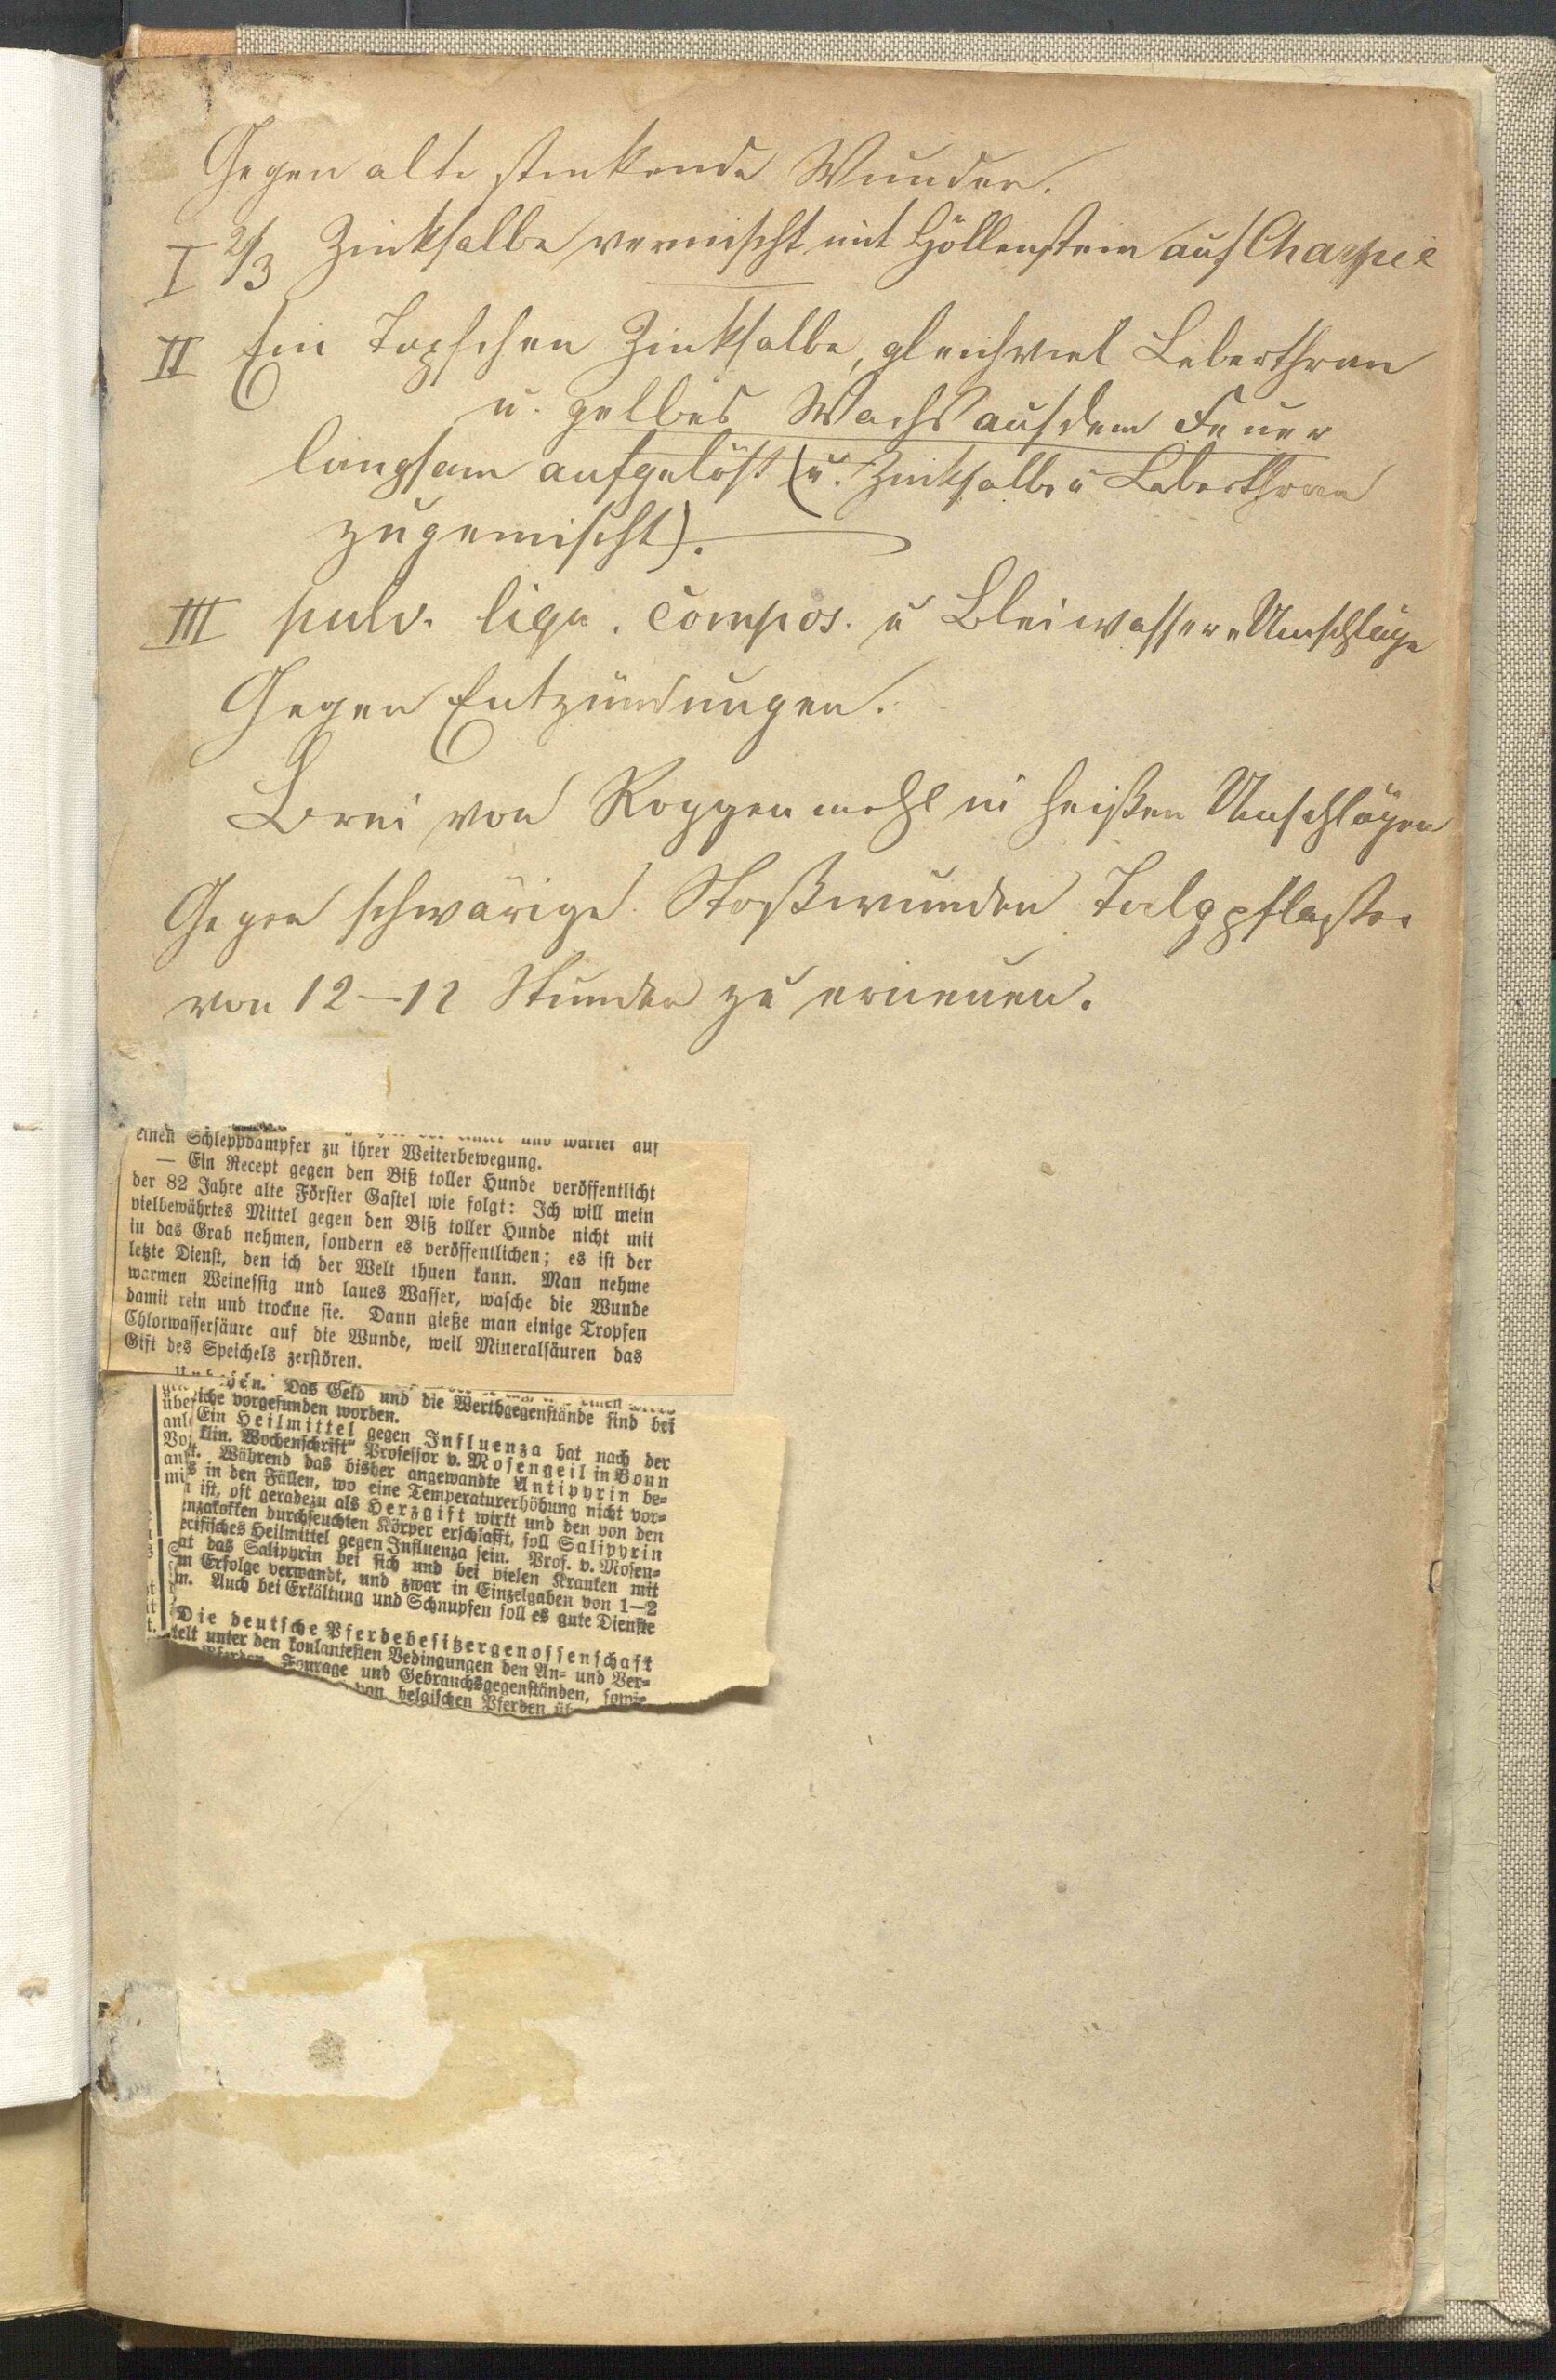 Gegen alte stinkende Wunden.
I 2/3 Zinksalbe vermischt mit Höllenstein auf Charpie
II Ein Topfchen Zinksalbe, gleichviel Leberthran
u. gelbes Wachs auf dem Feuer
langsam aufgelöst (u. Zinksalbe u Leberthran
zugemischt).
III pulv. liqu. compos. u Bleiwasser-Umschläge
Gegen Entzündungen.
Brei von Roggenmehl in heißen Umschlägen
Gegen schwärige Stoßwunden Talgpflaster
von 12–12 Stunden zu erneuen.
und wartet auf
einen Schleppdampfer zu ihrer Weiterbewegung.
— Ein Recept gegen den Biß toller Hunde veröffentlicht
der 82 Jahre alte Förster Gastel wie folgt: Ich will mein
vielbewährtes Mittel gegen den Biß toller Hunde nicht mit
in das Grab nehmen, sondern es veröffentlichen; es ist der
letzte Dienst, den ich der Welt thuen kann. Man nehme
warmen Weinessig und laues Wasser, wasche die Wunde
damit rein und trockne sie. Dann gieße man einige Tropfen
Chlorwassersäure auf die Wunde, weil Mineralsäuren das
Gift des Speichels zerstören.
Das Geld und die Werthgegenstände sind bei
iche vorgefunden worden.
Ein Heilmittel gegen Influenza hat nach der
klin. Wochenschrift" Professor v. Mosengeil in Bonn
t. Während das bisher angewandte Antipyrin be-
s in den Fällen, wo eine Temperaturerhöhung nicht vor-
ist, oft geradezu als Herzgift wirkt und den von den
nzakokken durchseuchten Körper erschlafft, soll Salipyrin
ecifisches Heilmittel gegen Influenza sein. Prof. v. Mosen-
at das Salipyrin bei sich und bei vielen Kranken mit
m Erfolge verwandt, und zwar in Einzelgaben von 1—2
m. Auch bei Erkältung und Schnupfen soll es gute Dienste
Die deutsche Pferdebesitzergenossenschaft
telt unter den koulantesten Bedingungen den An- und Ver-
Pferden Fourage und Gebrauchsgegenständen, sowie
von belgischen Pferden